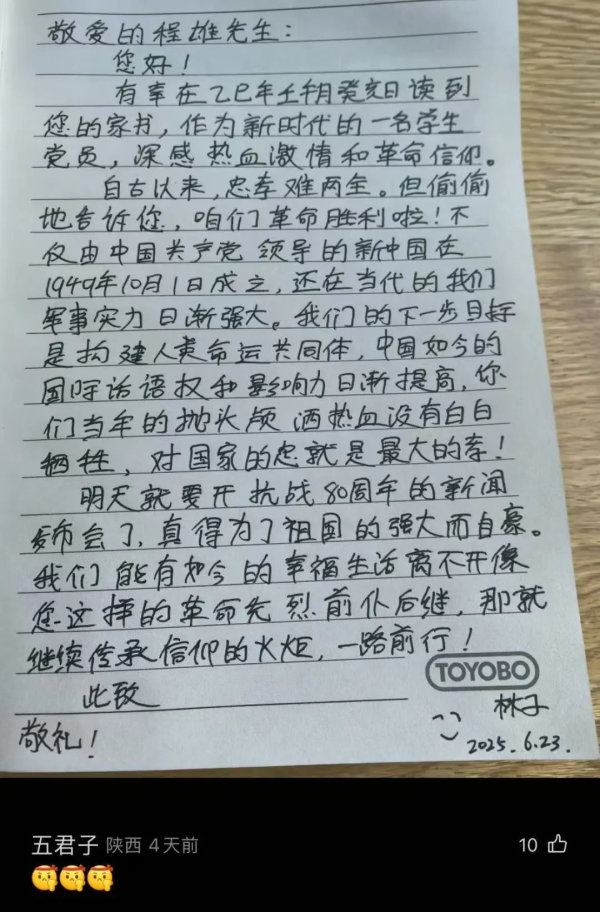 敬爱的程雄先生：
您好！
有幸在乙巳年壬午月癸亥日读到
您的家书，作为新时代的一名学生
党员，深感热血激情和革命信仰。
自古以来，忠孝难两全。但偷偷
地告诉您，咱们革命胜利啦！不
仅由中国共产党领导的新中国在
1949年10月1日成立，还在当代的我们
军事实力日渐强大。我们的下一步目标
是构建人类命运共同体，中国如今的
国际话语权和影响力日渐提高，你
们当年的抛头颅洒热血没有白白
牺牲，对国家的忠就是最大的孝！
明天就要开抗战80周年的新闻
发布会了，真得为了祖国的强大而自豪。
我们能有如今的幸福生活离不开像
您这样的革命先烈前仆后继，那就
继续传承信仰的火炬，一路前行！
此致
TOYOBO
林子
敬礼！
2025.6.23.
五君子 陕西 4天前
10